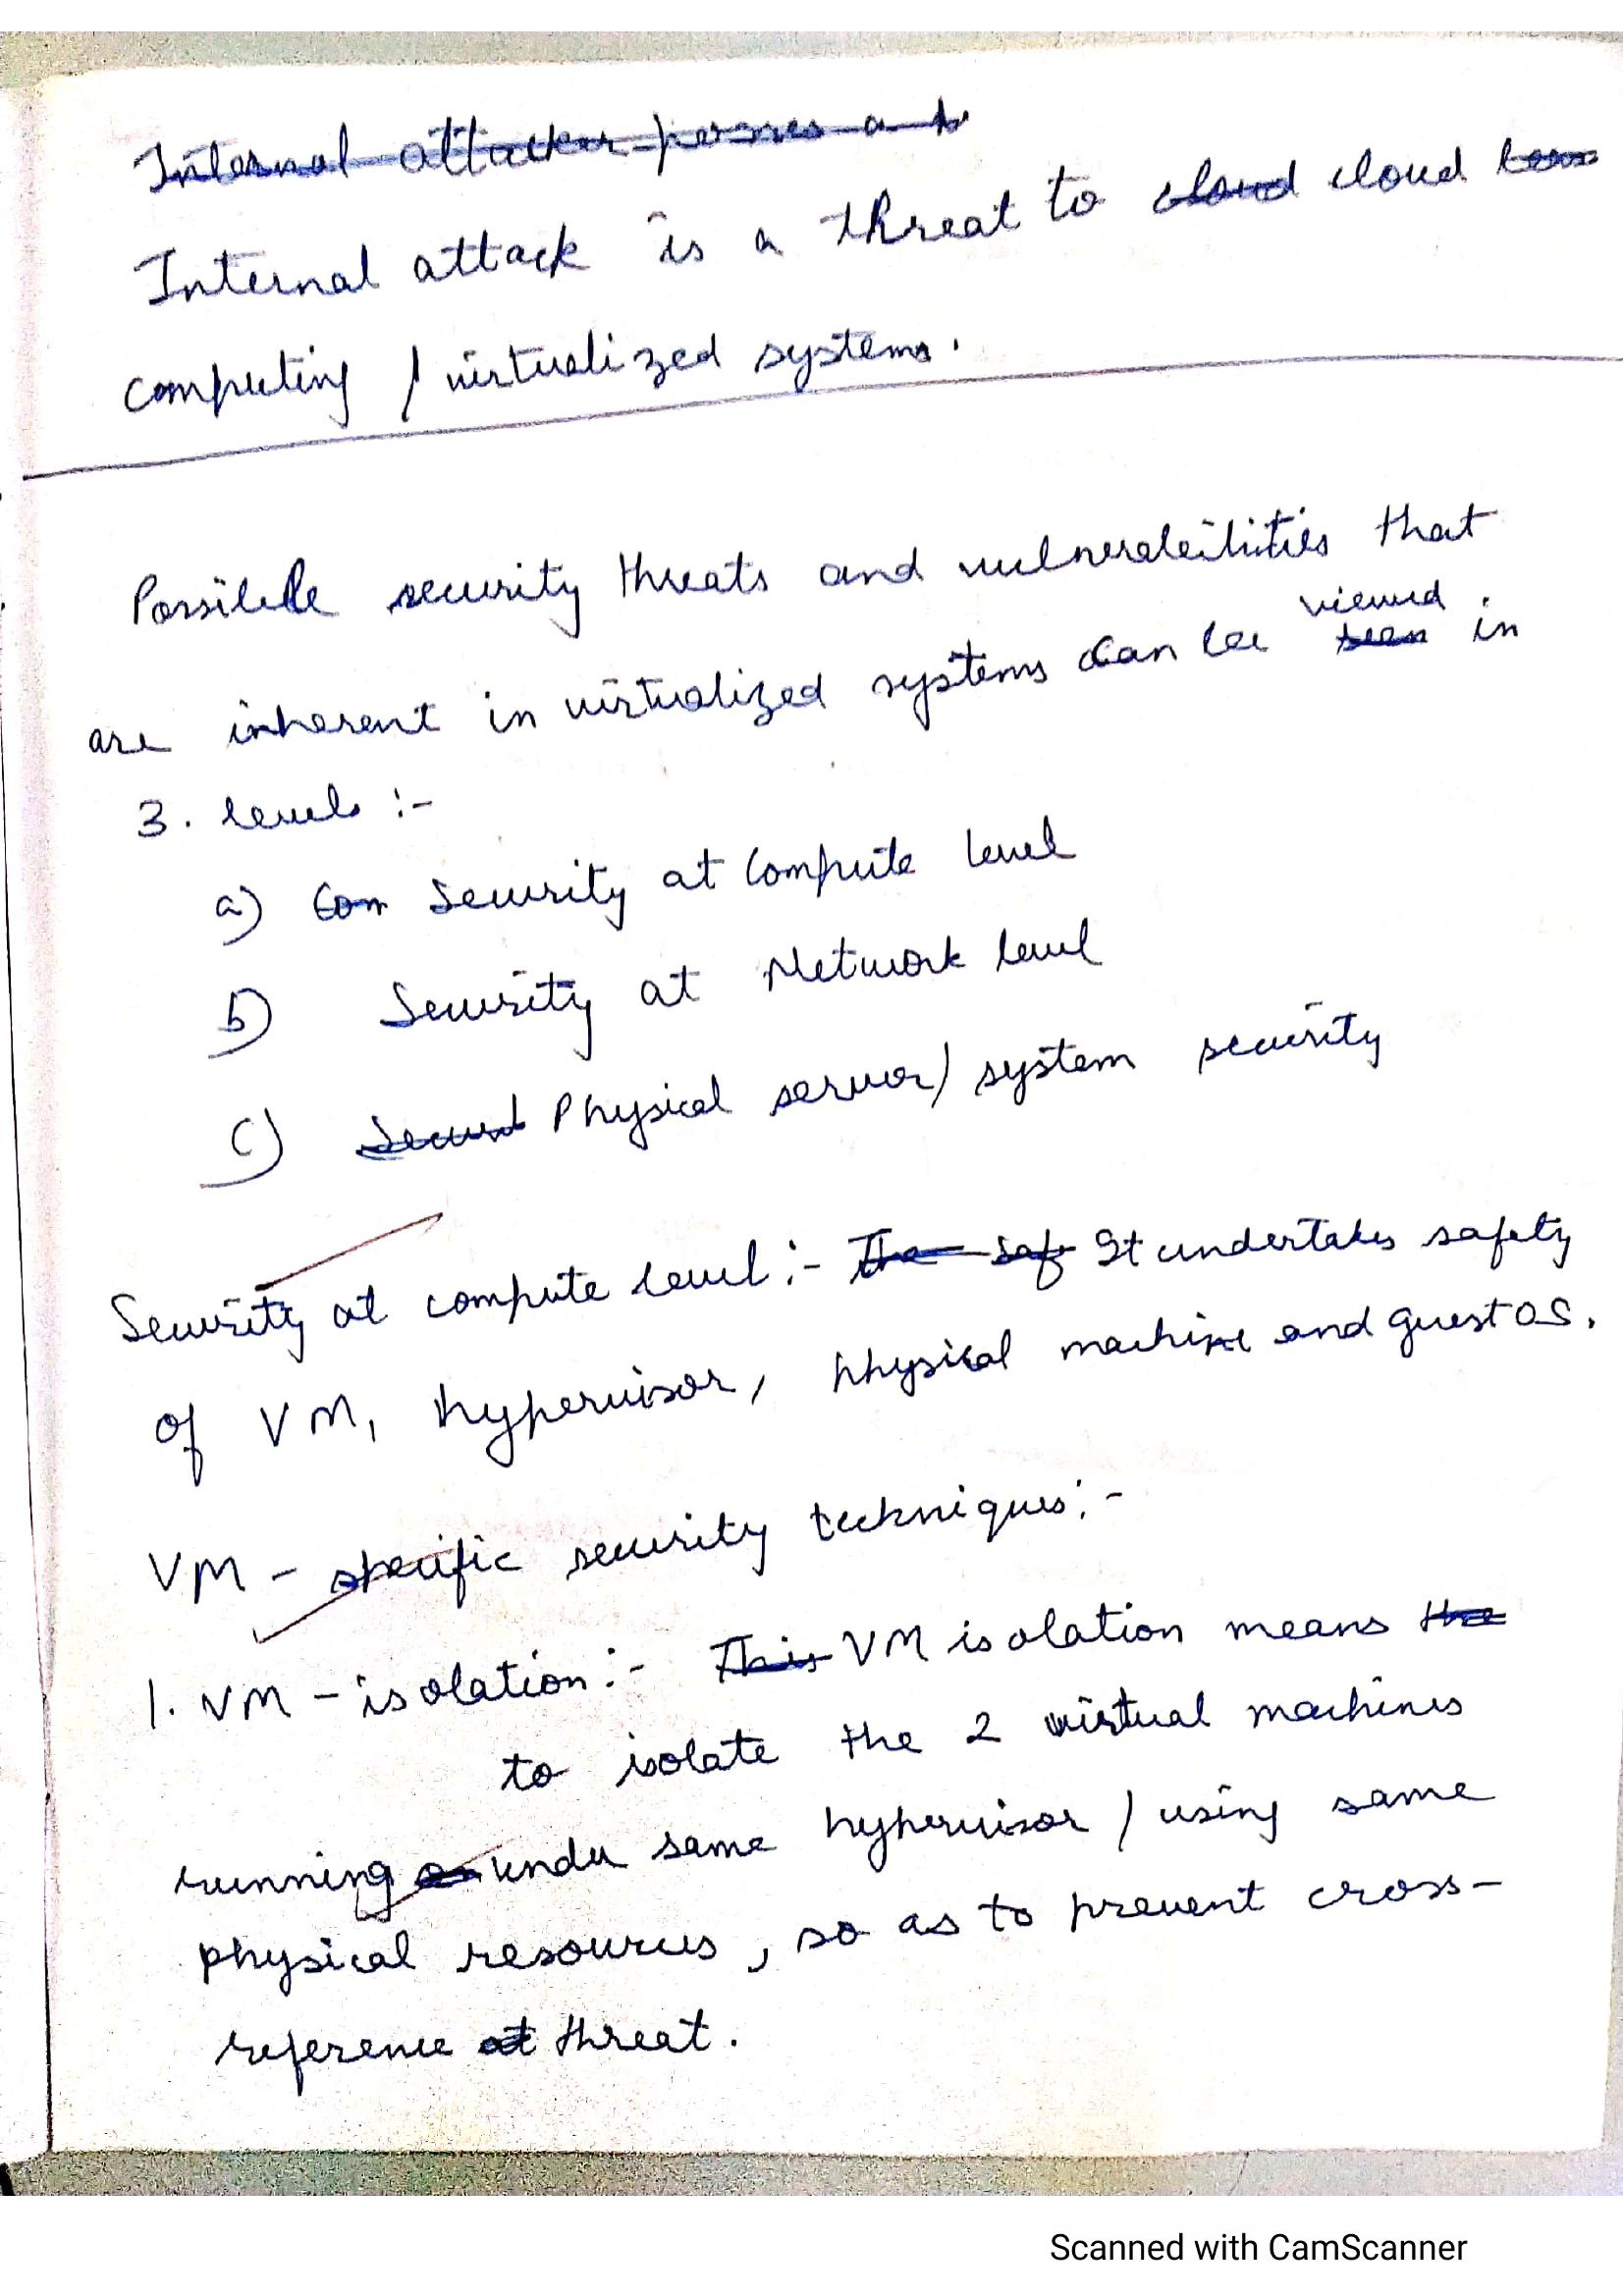 Internal attacker posses a t
Internal attack is a threat to cloud cloud
computing / virtualized systems.
Possible security threats and vulnerabilities that
viewed
are inherent in virtualized systems can be seen in
3. levels :-
a) Com Security at Compute level
b) Security at Network level
c) Securit Physical server/system security
Security at compute level :- The saf It undertakes safety
of VM, hypervisor, physical machine and guest OS.
VM - specific security techniques :-
1. VM - isolation :- This VM isolation means the
to isolate the 2 virtual machines
running on under same hypervisor / using same
physical resources, so as to prevent cross-
reference at threat.
Scanned with CamScanner